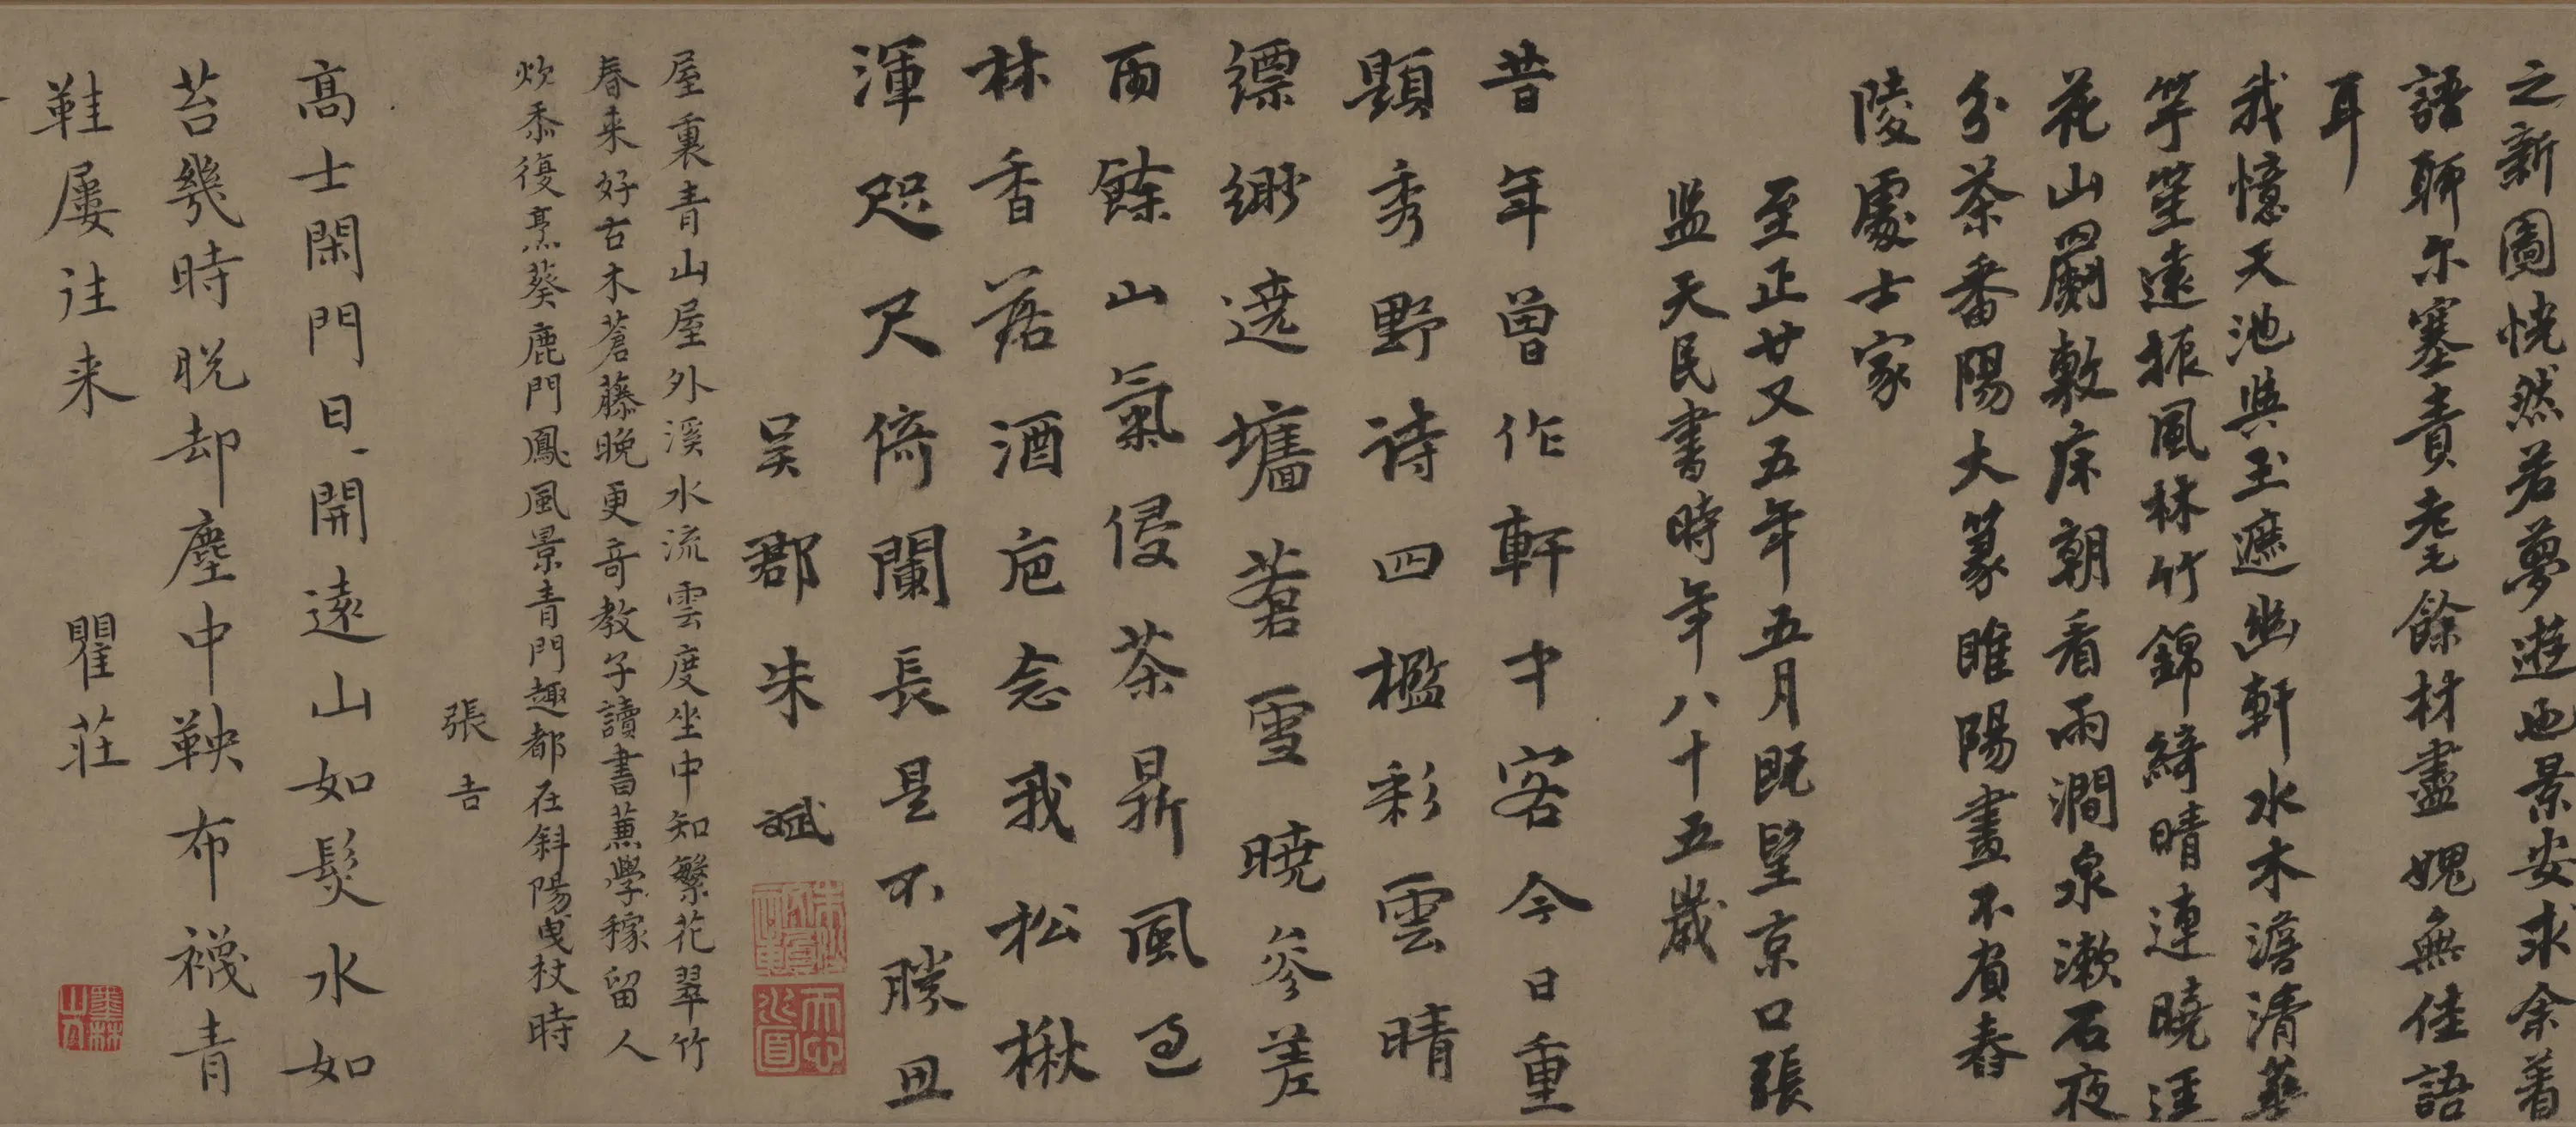 之新圖恍然若夢遊也景安求余着
語聊尔塞責老耄餘材盡媿無佳語
耳
我憶天池與玉遮幽軒水木澹清華
竽笙遠振風林竹錦綺晴連曉逕
花山罽敷床朝看雨澗泉漱石夜
分茶番陽大篆睢陽畫不負春
陵處士家
至正廿又五年五月既望京口張
監天民書時年八十五歲
昔年曾作軒中客今日重
題秀野詩四檻彩雲晴
縹緲遶墻蒼雪曉參差
雨餘山氣侵茶鼎風過
林香落酒卮念我松楸
渾咫尺倚闌長是不勝丑
吳郡朱斌
屋裏青山屋外溪水流雲度坐中知繁花翠竹
春来好古木蒼藤晚更奇教子讀書蕉學稼留人
炊黍復烹葵鹿門鳳風景青門趣都在斜陽曳杖時
張吉
高士閑門日日開遠山如髮水如
苔幾時脫却塵中鞅布襪青
鞋屢往来
瞿莊